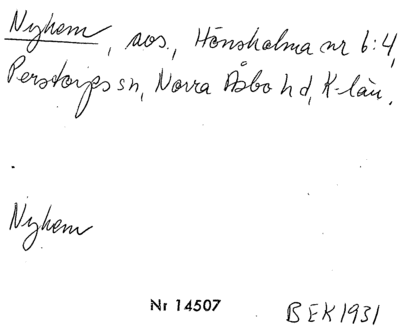 Nyhem, avs., Hönsholma nr 6:4,
Perstorps sn, Norra Åsbo hd, K-län.
Nyhem
Nr 14507
BEK 1931